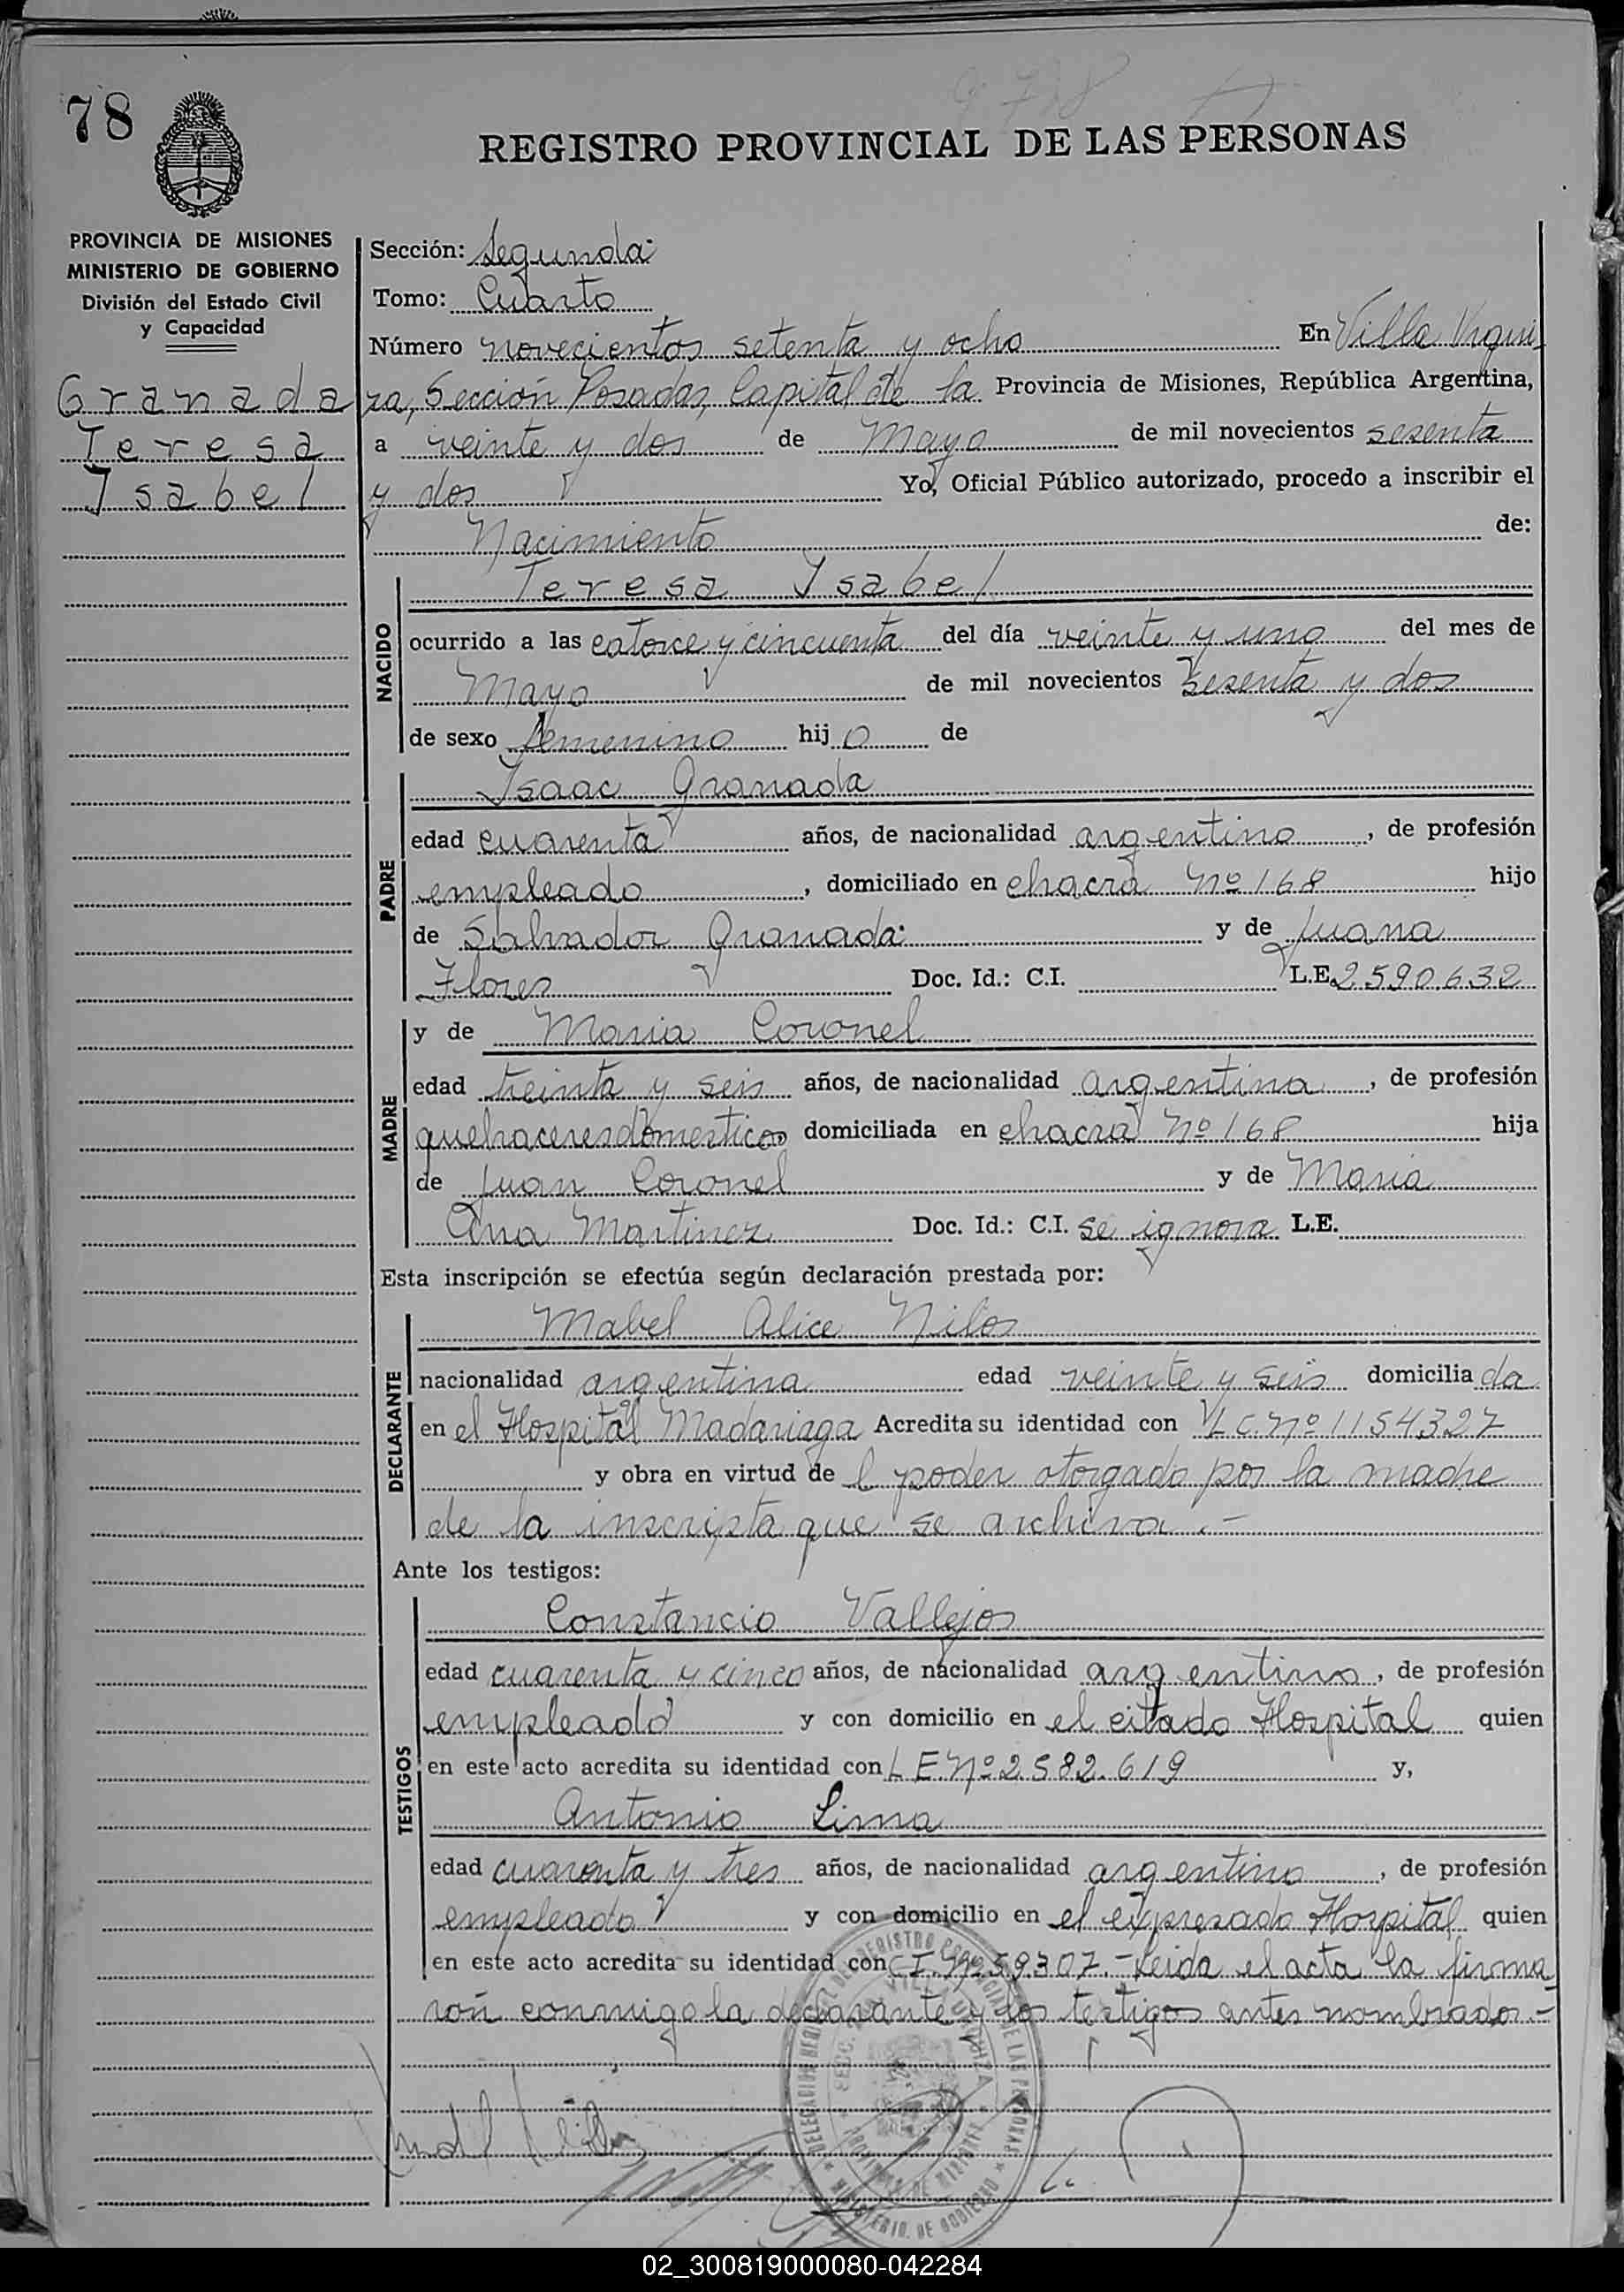 78
REGISTRO PROVINCIAL DE LAS PERSONAS
PROVINCIA DE MISIONES
MINISTERIO DE GOBIERNO
División del Estado Civil
y Capacidad
Granada
Teresa
Isabel
Sección: Segunda
Tomo: Cuarto
Número novecientos setenta y ocho En Villa Urqui-
za, Sección Posadas, Capital de la Provincia de Misiones, República Argentina,
a veinte y dos de Mayo de mil novecientos sesenta
y dos Yo, Oficial Público autorizado, procedo a inscribir el
Nacimiento de:
NACIDO
Teresa Ysabel
ocurrido a las catorce y cincuenta del día veinte y uno del mes de
Mayo de mil novecientos sesenta y dos
de sexo femenino hijo de
PADRE
Isaac Granada
edad cuarenta años, de nacionalidad argentino, de profesión
empleado, domiciliado en chacra Nº 168 hijo
de Salvador Granada y de Juana
Flores Doc. Id.: C.I. L.E. 2590.632
MADRE
y de Maria Coronel
edad treinta y seis años, de nacionalidad argentina, de profesión
quehaceres domesticos domiciliada en chacra Nº 168 hija
de Juan Coronel y de Maria
Ana Martinez Doc. Id.: C.I. se ignora L.E.
Esta inscripción se efectúa según declaración prestada por:
DECLARANTE
Mabel Alice Nilos
nacionalidad argentina edad veinte y seis domiciliada
en el Hospital Madariaga Acredita su identidad con L C. Nº 1154327
y obra en virtud del poder otorgado por la madre
de la inscripta que se archiva.-
Ante los testigos:
TESTIGOS
Constancio Vallejos
edad cuarenta y cinco años, de nacionalidad argentino, de profesión
empleado y con domicilio en el citado Hospital quien
en este acto acredita su identidad con L E Nº 2582.619 y,
Antonio Lima
edad cuarenta y tres años, de nacionalidad argentino, de profesión
empleado y con domicilio en el expresado Hospital quien
en este acto acredita su identidad con C I. Nº 59307.- Leida el acta la firma-
ron conmigo la declarante y los testigos antes nombrados.-
02_300819000080-042284